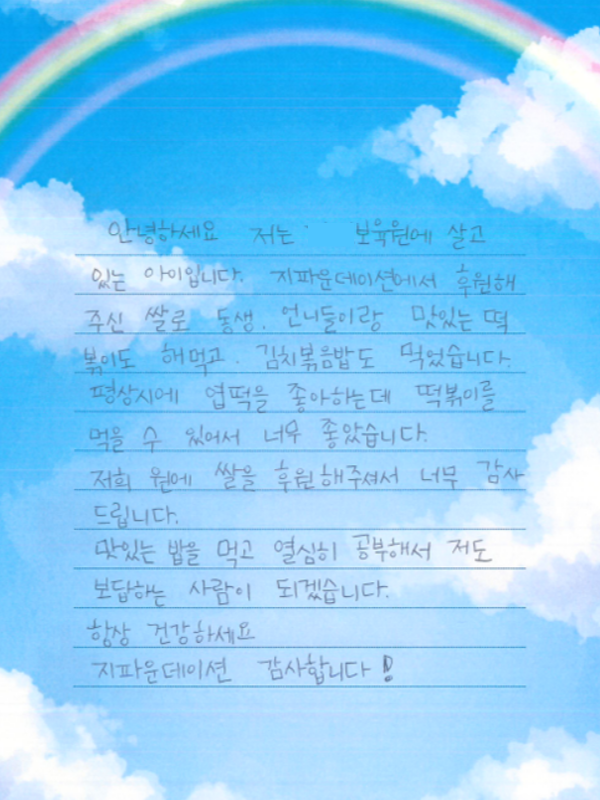 안녕하세요 저는 보육원에 살고
있는 아이입니다. 지파운데이션에서 후원해
주신 쌀로 동생, 언니들이랑 맛있는 떡
볶이도 해먹고, 김치볶음밥도 먹었습니다.
평상시에 엽떡을 좋아하는데 떡볶이를
먹을 수 있어서 너무 좋았습니다.
저희 원에 쌀을 후원해주셔서 너무 감사
드립니다.
맛있는 밥을 먹고 열심히 공부해서 저도
보답하는 사람이 되겠습니다.
항상 건강하세요
지파운데이션 감사합니다!